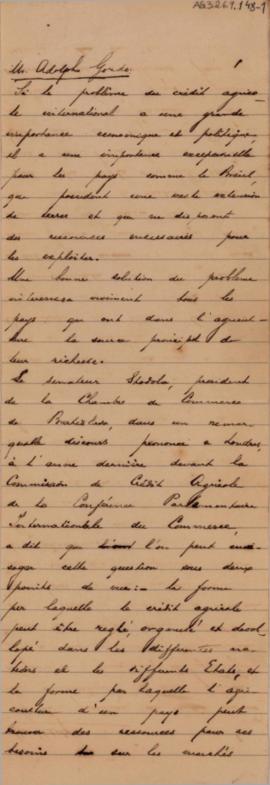 AG3269.148-1
Mr. Adolpho Gordo.
1
Si le problème du crédit agrico-
le international a une grande
importance economique et politique,
il a une importance exceptionelle
pour les pays comme le Brésil,
que possedent une vaste extension
de terres et que ne disposent
des ressources necessaires pour
les exploiter.
Une bonne solution du probleme
interessera vivement tous les
pays que ont dans l'agricul-
ture la source principal de
leur richesse.
Le senateur Stodola, president
de la Chambre de Commerce
de Bratislava, dans un remar-
quable discours prononcé a Londres,
à l'année dernière devant la
Commission de Crédit Agricole
de la Conférence Parlementaire
Internationale du Commerce,
a dit que l'on peut envi-
sager cette question sous deux
points de vue: - la forme
par laquelle le crédit agricole
peut être reglé, organisé et devel-
lopé dans les differentes ma-
tières et les differents Etats, et
la forme par laquelle l'agri-
culture d'un pays peut
trouver des ressources pour ses
besoins sur les marchés